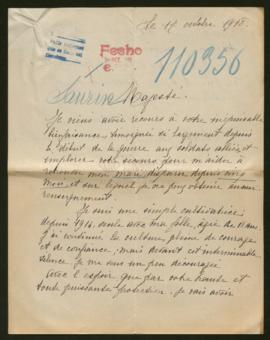 Le 17 octobre 1918.
Fecho
110356
Majesté.
Je viens avoir recours à votre inépuisable
bienfaisance, témoignée si largement depuis
le début de la guerre aux soldats alliés et
implorer votre secours pour m'aider à
retrouver mon mari disparu depuis cinq
mois, et sur lequel je ne puis obtenir aucun
renseignement.
Je suis une simple cultivatrice
depuis 1914, seule avec ma fille, âgée de 11 ans
j'ai continué la culture, pleine de courage
et de confiance, mais devant cet interminable
silence je me sens un peu découragée.
Avec l'espoir que par votre haute et
toute puissante protection, je vais avoir